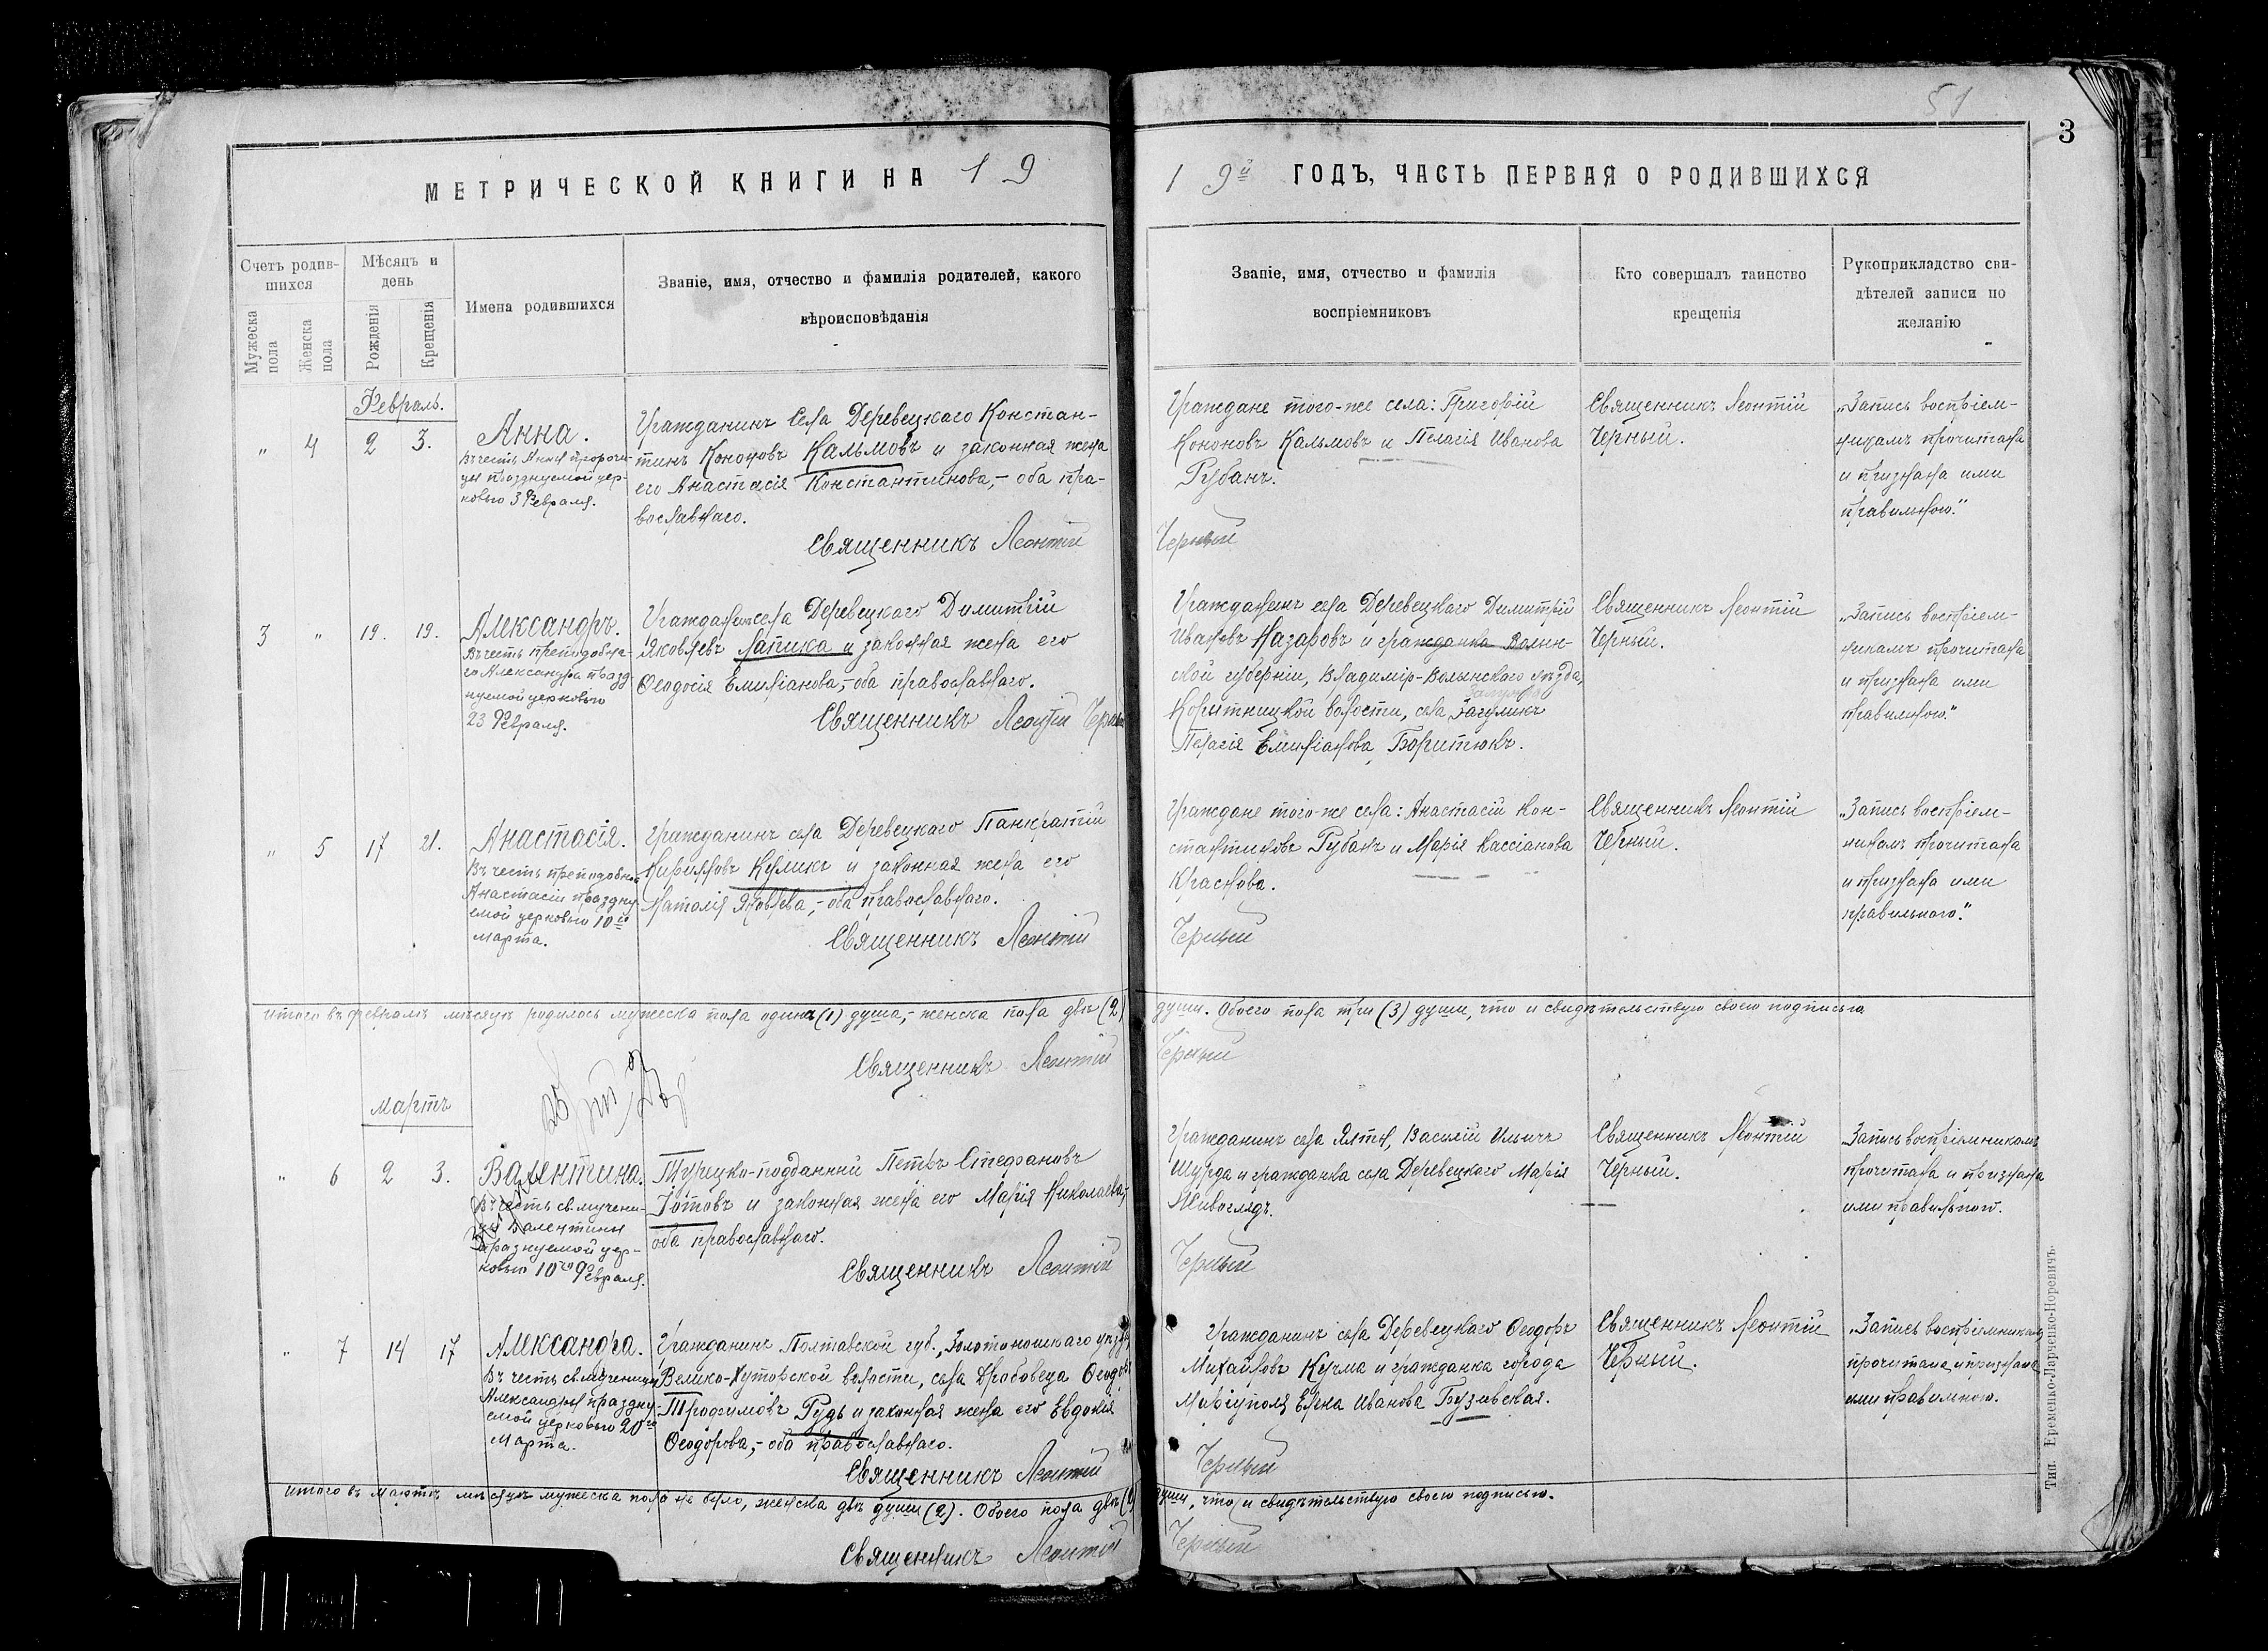 51
3
МЕТРИЧЕСКОЙ КНИГИ НА 19
19й ГОДЪ, ЧАСТЬ ПЕРВАЯ О РОДИВШИХСЯ
Счетъ родив-
шихся
Мужеска
пола
Женска
пола
Мѣсяцъ и
день
Рожденія
Крещенія
Имена родившихся
Званіе, имя, отчество и фамилія родителей, какого
вѣроисповѣданія
Званіе, имя, отчество и фамилія
воспріемниковъ
Кто совершалъ таинство
крещенія
Рукоприкладство сви-
дѣтелей записи по
желанію
Февраль.
„ 4 2 3.
Анна.
Въ честь Анны пророчи-
цы празднуемой цер-
ковью 3 Февраля.
Гражданинъ Села Деревецкаго Констан-
тинъ Кононовъ Кальмовъ и законная жена
его Анастасія Константинова,- оба пра-
вославнаго.
Священникъ Леонтій
Граждане того-же села: Григорій
Кононовъ Кальмовъ и Пелагія Иванова
Рубанъ.
Черный
Священникъ Леонтій
Черный.
„Запись воспріем-
никамъ прочитана
и признана ими
правильною."
3 „ 19. 19.
Александръ.
Въ честь преподобна-
го Александра празд-
нуемой церковью
23 Февраля.
Гражданинъ села Деревецкаго Димитрій
Яковлевъ Лапика и законная жена его
Ѳеодосія Емиліанова,- оба православнаго.
Священникъ Леонтій Черный
Гражданинъ села Деревецкаго Димитрій
Ивановъ Назаровъ и гражданка Волын-
ской губерніи, Владимір-Волынскаго уѣзда,
Коритницкой волости, села Загумикъ
Пелагія Емиліанова Боритюкъ.
Священникъ Леонтій
Черный.
„Запись воспріем-
никамъ прочитана
и признана ими
правильною."
„ 5 17 21.
Анастасія.
Въ честь преподобной
Анастасіи праздну-
емой церковью 10го
марта.
Гражданинъ села Деревецкаго Панкратій
Кирилловъ Куликъ и законная жена его
Наталія Яковлева,- оба православнаго.
Священникъ Леонтій
Граждане того-же села: Анастасій Кон-
стантиновъ Рубанъ и Марія Кассіанова
Краснова.
Черный
Священникъ Леонтій
Черный.
„Запись воспріем-
никамъ прочитана
и признана ими
правильною."
Итого въ февралѣ мѣсяцѣ родилось мужеска пола одинъ (1) душа,- женска пола двѣ (2)
души. Обоего пола три (3) души, что и свидѣтельствую своею подписью
Священникъ Леонтій
Черный
Мартъ
„ 6 2 3.
Валентина.
Въ честь св. мучени-
цы Валентины
празнуемой цер-
ковью 10го Февраля.
Турецко-подданный Петръ Стефановъ
Іотовъ и законная жена его Марія Николаева,-
оба православнаго.
Священникъ Леонтій
Гражданинъ села Ялты, Василій Ильичъ
Шурда и гражданка села Деревецкаго Марія
Живоглядъ.
Черный
Священникъ Леонтій
Черный.
Запись воспріемникамъ
прочитана и признана
ими правильною.
„ 7 14 17
Александра.
Въ честь св. мученицы
Александры праздну-
емой церковью 20го
Марта.
Гражданинъ Полтавской губ., Золотоношскаго уѣзда,
Велико-Хуторской волости, села Драбовеца Ѳеодоръ
Трофимовъ Рудь и законная жена его Евдокія
Ѳеодорова,- оба православнаго.
Священникъ Леонтій
Гражданинъ села Деревецкаго Ѳеодоръ
Михайловъ Кучма и гражданка города
Маріуполя Елена Иванова Бузивская.
Черный
Священникъ Леонтій
Черный.
„Запись воспріемникамъ
прочитана и признана
ими правильною.
Итого въ Мартѣ мѣсяцѣ мужеска пола не было, женска двѣ души (2). Обоего пола двѣ (2)
души, что и свидѣтельствую своею подписью.
Священникъ Леонтій
Черный
Тип. Еременко-Ларченко-Норевичъ.